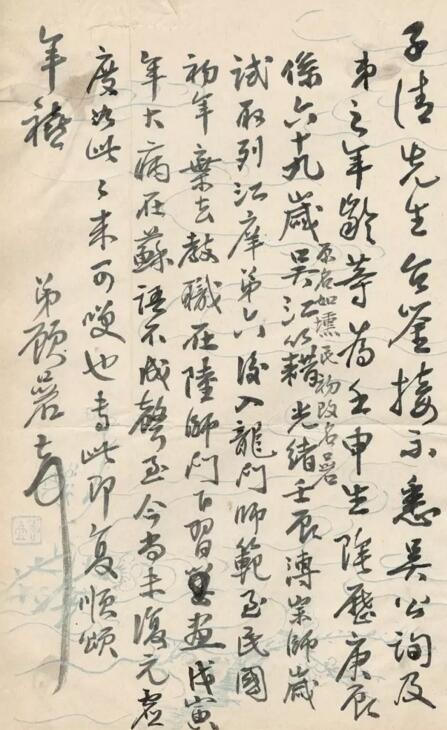 子清先生台鉴接示悉吴公询及
弟之年龄等为壬申生阴历庚辰
系六十九岁吴江籍光绪壬辰溥宗师岁
原名如壎民初改名岩
试取列江庠第六后入龙门师范至民国
初年弃去教职在陆师门下习画戊寅
年大病在苏语不成声至今尚未复元虚
度如此之来可叹也专此即复顺颂
年禧
弟顾岩